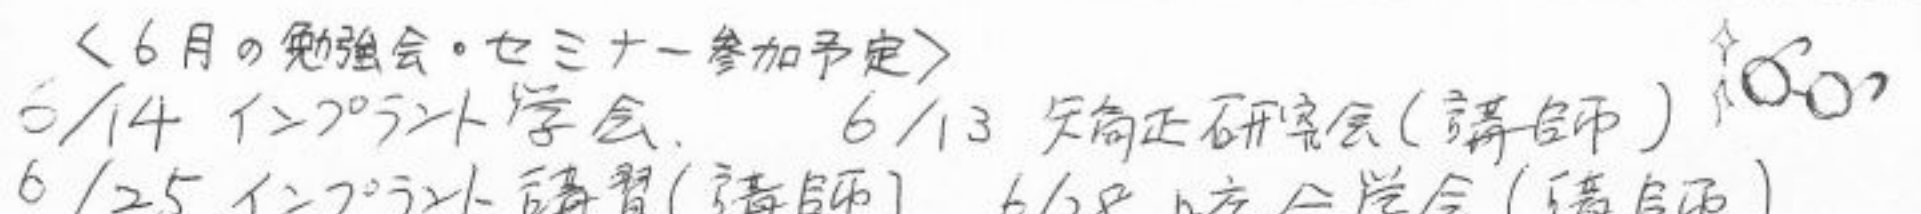 <6月の勉強会・セミナー参加予定>
6/14 インプラント学会. 6/13 矯正研究会(講師)
6/25 インプラント講習(講師) 6/28 咬合学会(講師)